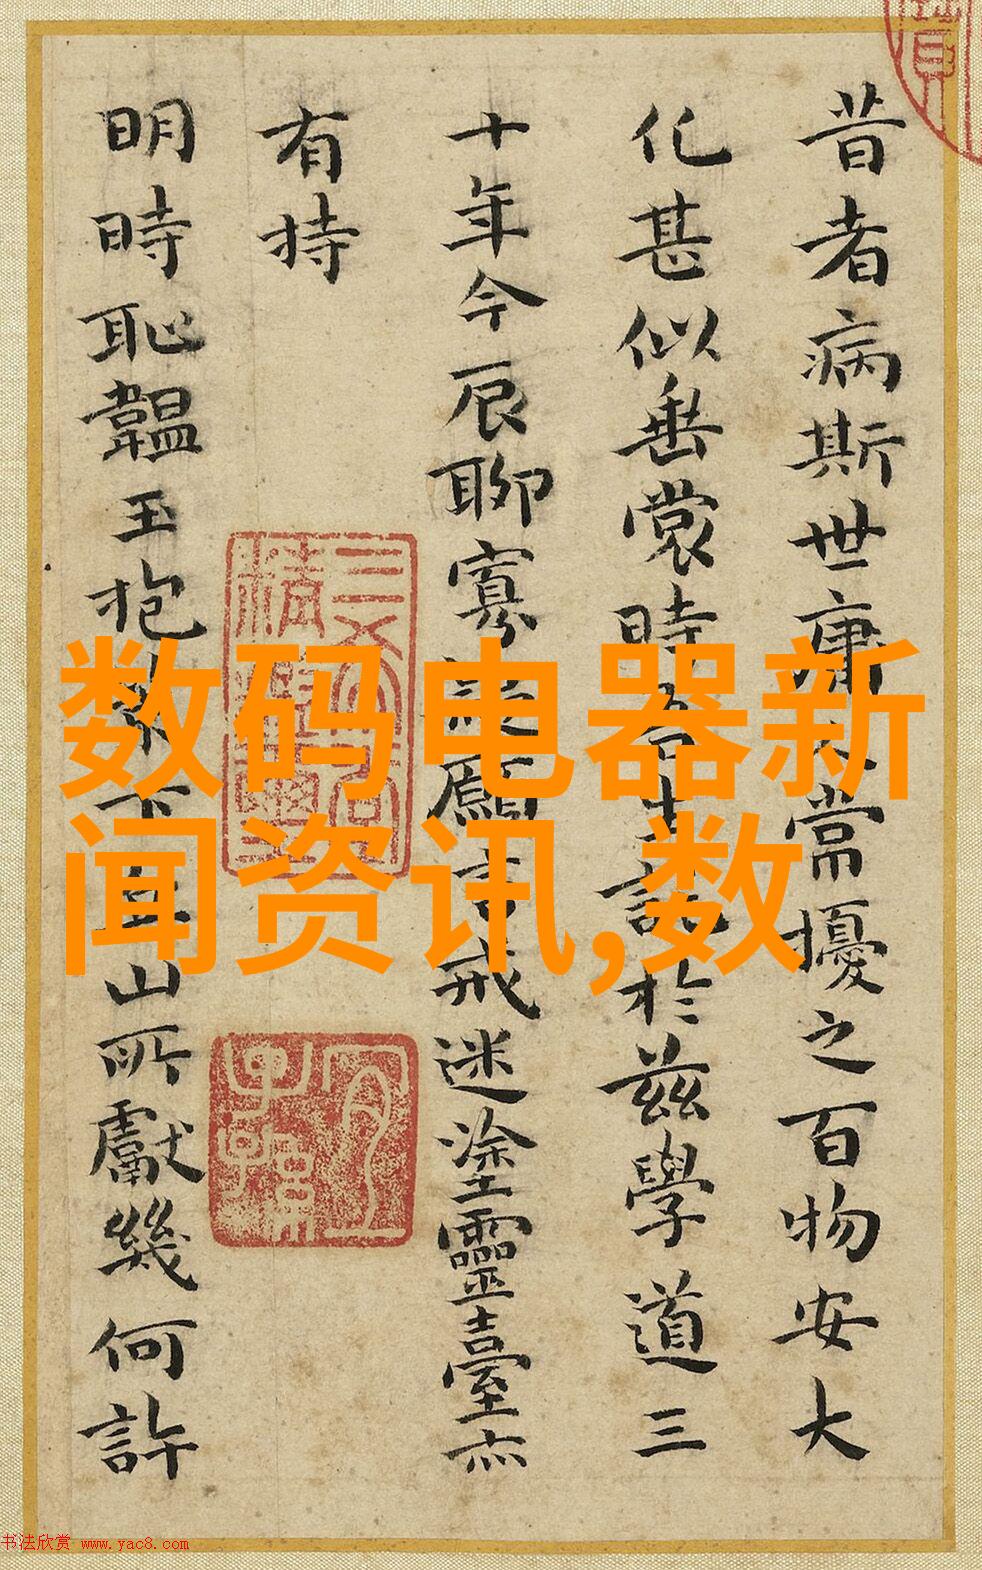 昔者病斯世庸常擾之百物安大
化甚似垂裳時於茲學道三
十年今辰聊寡願言戒迷塗靈臺亦
有持
明時恥韞玉抱下山所獻幾何許
数码电器新
闻资讯,数
书法欣赏 www.yac8.com